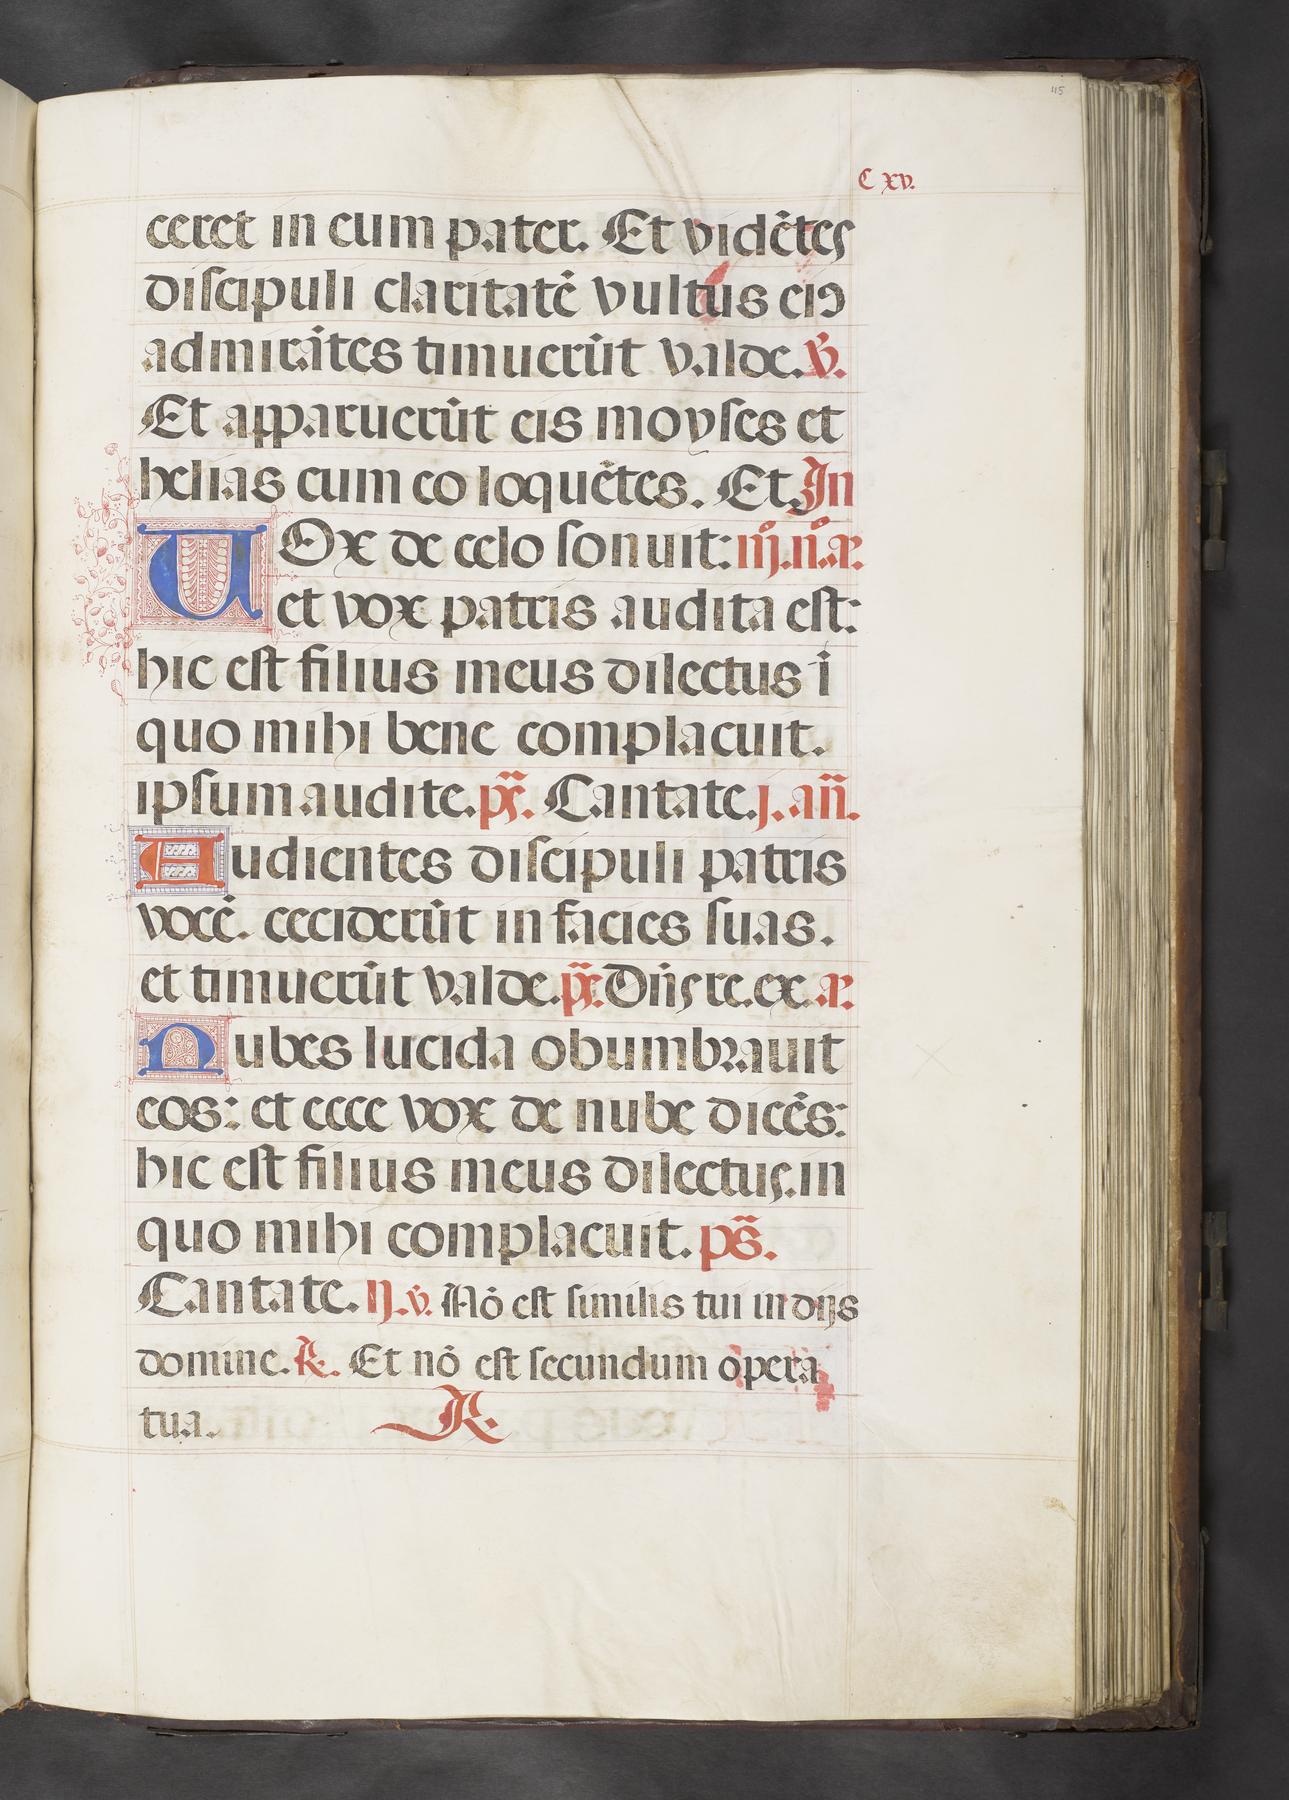 115
C xv.
ceret in eum pater. Et vidētes
discipuli claritatē vultus eiꝰ
admirātes timuerūt valde. ꝟ.
Et apparuerūt eis moyses et
helias cum eo loquētes. Et. In
UOx de celo sonuit: iij. n̊. a.
et vox patris audita est:
hic est filius meus dilectus ī
quo mihi bene complacuit.
ipsum audite. ps̄. Cantate. j. an̄.
Audientes discipuli patris
vocē. ceciderūt in facies suas.
et timuerūt valde. ps̄. Dn̄s re. ex. a.
Nubes lucida obumbrauit
eos: et ecce vox de nube dicēs:
hic est filius meus dilectus. in
quo mihi complacuit. ps̄.
Cantate. n. ꝟ. Nō est similis tui in dijs
domine. ℟. Et nō est secundum opera
tua. ℟.